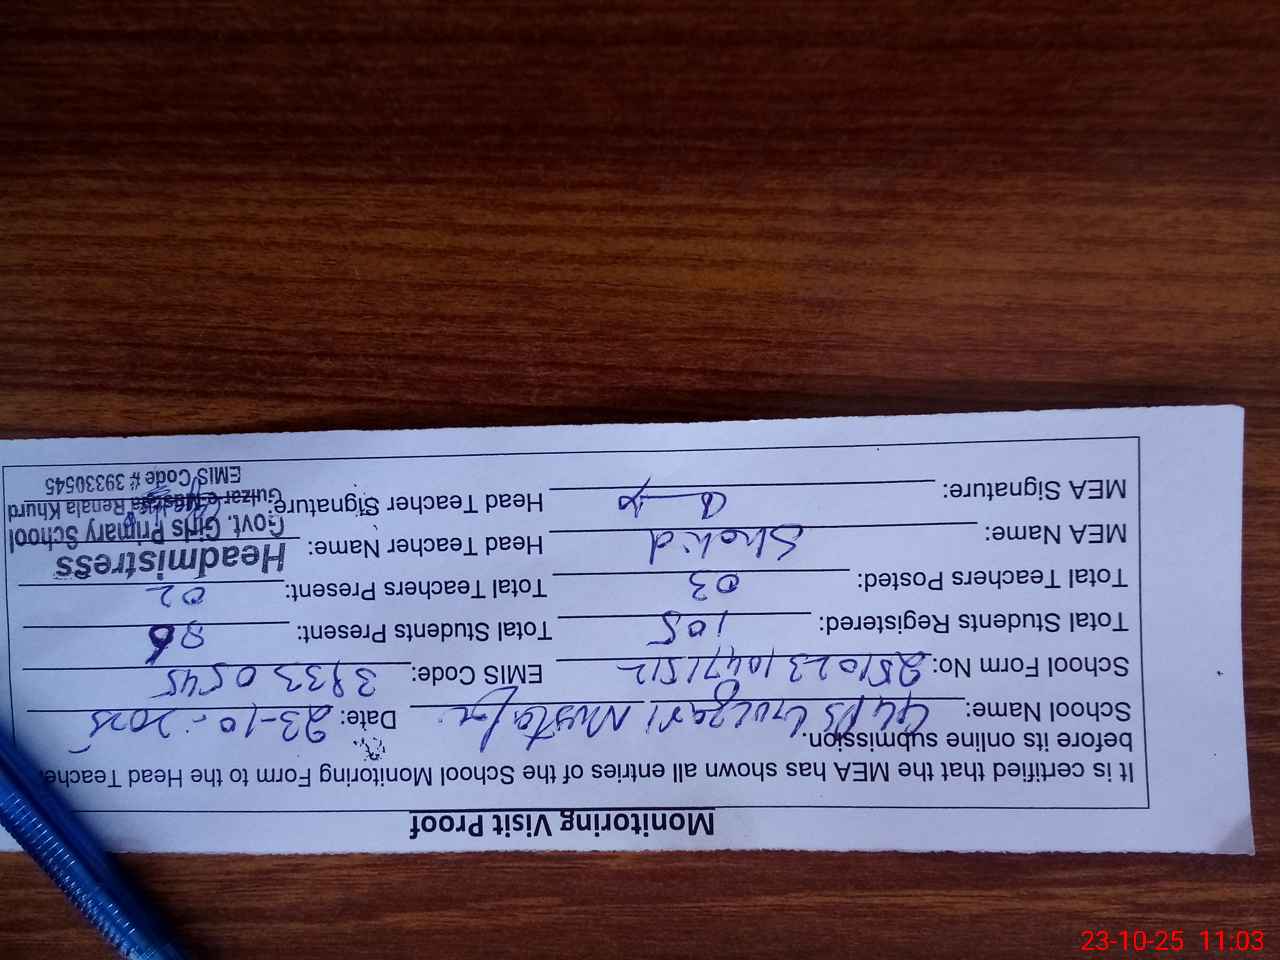 Monitoring Visit Proof
It is certified that the MEA has shown all entries of the School Monitoring Form to the Head Teache
before its online submission.
School Name: GGPS Gulzari Mustafa Date: 23-10-2025
School Form No: 25102310471512 EMIS Code: 39330545
Total Students Registered: 105 Total Students Present: 86
Total Teachers Posted: 03 Total Teachers Present: 02
MEA Name: Shahid Head Teacher Name: Headmistress
Govt. Girls Primary School
MEA Signature: Head Teacher Signature: Gulzar-e- Renala Khurd
EMIS Code # 39330545
23-10-25 11:03